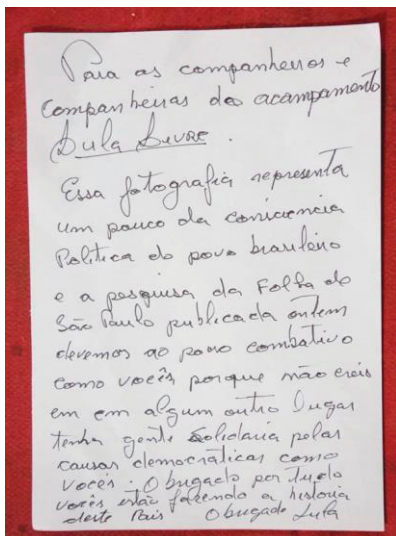 Para as companheiros e
companheiras do acampamento
Lula Livre.
Essa fotografia representa
um pouco da consciencia
Politica do povo brasileiro
e a pesquisa da Folha de
São Paulo publicada ontem
devemos ao povo combativo
como vocês porque não creio
em em algum outro lugar
tenha gente solidaria pelas
causas democráticas como
vocês. Obrigado por tudo
vocês estão fazendo a historia
deste País Obrigado Lula